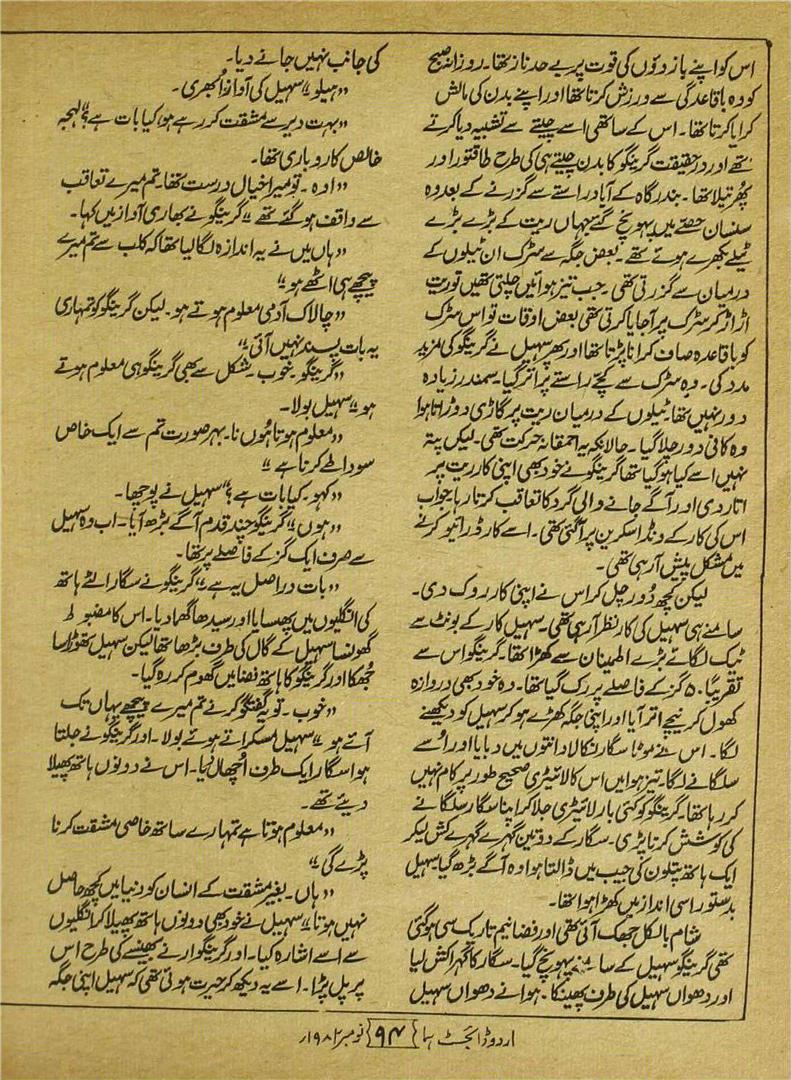 اس کو اپنے بازوؤں کی قوت پر بے حد ناز تھا۔ روزانہ صبح
کو وہ باقاعدگی سے ورزش کرتا تھا اور اپنے بدن کی مالش
کرایا کرتا تھا۔ اس کے ساتھی اسے چیتے سے تشبیہ دیا کرتے
تھے اور در حقیقت گرینگو کا بدن چیتے ہی کی طرح طاقتور اور
پھرتیلا تھا۔ بندرگاہ کے آباد راستے سے گزرنے کے بعد وہ
سنسان حصّے میں پہونچ گئے جہاں ریت کے بڑے بڑے
ٹیلے بکھرے ہوئے تھے۔ بعض جگہ سے سڑک ان ٹیلوں کے
درمیان سے گزرتی تھی۔ جب تیز ہوائیں چلتی تھیں تو ریت
اڑ اڑ کر سڑک پر آ جایا کرتی تھی بعض اوقات تو اس سڑک
کو باقاعدہ صاف کرانا پڑتا تھا اور پھر سہیل نے گرینگو کی مزید
مدد کی۔ وہ سڑک سے کچّے راستے پر اتر گیا۔ سمندر زیادہ
دور نہیں تھا۔ ٹیلوں کے درمیان ریت پر گاڑی دوڑاتا ہوا
وہ کافی دور چلا گیا۔ حالانکہ یہ احمقانہ حرکت تھی۔ لیکن پتہ
نہیں اسے کیا ہو گیا تھا گرینگو نے خود بھی اپنی کار ریت پر
اتار دی اور آگے جانے والی گرد کا تعاقب کرتا رہا۔ جواب
اس کی کار کے ونڈ اسکرین پر آ گئی تھی۔ اسے کار ڈرائیو کرنے
میں مشکل پیش آ رہی تھی۔
لیکن کچھ دُور چل کر اس نے اپنی کار روک دی۔
سامنے ہی سہیل کی کار نظر آ رہی تھی۔ سہیل کار کے بونٹ سے
ٹیک لگائے بڑے اطمینان سے کھڑا تھا۔ گرینگو اس سے
تقریباً ۵۰ گز کے فاصلے پر رک گیا تھا۔ وہ خود بھی دروازہ
کھول کر نیچے اتر آیا اور اپنی جگہ کھڑے ہو کر سہیل کو دیکھنے
لگا۔ اس نے موٹا سگار نکالا دانتوں میں دبایا اور اُسے
سلگانے لگا۔ تیز ہوا میں اس کا لائیٹر صحیح طور پر کام نہیں
کر رہا تھا۔ گرینگو کو کئی بار لائیٹر جلا کر اپنا سگار سلگانے
کی کوشش کرنا پڑی۔ سگار کے دو تین گہرے گہرے کش لیکر
ایک ہاتھ پتلون کی جیب میں ڈالتا ہوا وہ آگے بڑھ گیا۔ سہیل
بدستور اسی انداز میں کھڑا ہوا تھا۔
شام بالکل جھک آئی تھی اور فضا نیم تاریک سی ہو گئی
تھی گرینگو سہیل کے سامنے پہونچ گیا۔ سگار کا گہرا کش لیا
اور دھواں سہیل کی طرف پھینکا۔ ہوا نے دھواں سہیل
کی جانب نہیں جانے دیا۔
”ہیلو“ سہیل کی آواز اُبھری۔
”بہت دیر سے مشقت کر رہے ہو، کیا بات ہے؟“ لہجہ
خالص کاروباری تھا۔
”اوہ۔ تو میرا خیال درست تھا۔ تم میرے تعاقب
سے واقف ہو گئے تھے“ گرینگو نے بھاری آواز میں کہا۔
”ہاں میں نے یہ اندازہ لگا لیا تھا کہ کلب سے تم میرے
پیچھے ہی اٹھے ہو“
”چالاک آدمی معلوم ہوتے ہو۔ لیکن گرینگو کو تمہاری
یہ بات پسند نہیں آئی“
”گرینگو۔ خوب۔ شکل سے بھی گرینگو ہی معلوم ہوتے
ہو“ سہیل بولا۔
”معلوم ہوتا ہُوں نا۔ بہر صورت تم سے ایک خاص
سودا طے کرنا ہے“
”کہو۔ کیا بات ہے؟“ سہیل نے پوچھا۔
”ہوں“ گرینگو چند قدم آگے بڑھ آیا۔ اب وہ سہیل
سے صرف ایک گز کے فاصلے پر تھا۔
”بات دراصل یہ ہے“ گرینگو نے سگار الٹے ہاتھ
کی انگلیوں میں پھنسایا اور سیدھا گھما دیا۔ اس کا مضبوط
گھونسا سہیل کے گال کی طرف بڑھا تھا لیکن سہیل تھوڑا سا
جُھکا اور گرینگو کا ہاتھ فضا میں گھوم کر رہ گیا۔
”خوب۔ تو یہ گفتگو کرنے تم میرے پیچھے یہاں تک
آئے ہو“ سہیل مسکراتے ہوئے بولا۔ اور گرینگو نے جلتا
ہوا سگار ایک طرف اُچھال دیا۔ اس نے دونوں ہاتھ پھیلا
دیئے تھے۔
”معلوم ہوتا ہے تمہارے ساتھ خاصی مشقت کرنا
پڑے گی“
”ہاں۔ بغیر مشقت کے انسان کو دنیا میں کچھ حاصل
نہیں ہوتا“ سہیل نے خود بھی دونوں ہاتھ پھیلا کر انگلیوں
سے اسے اشارہ کیا۔ اور گرینگو ارنے بھینسے کی طرح اس
پر پل پڑا۔ اسے یہ دیکھ کر حیرت ہوئی تھی کہ سہیل اپنی جگہ
اردو ڈائجسٹ ہما {۹۴} نومبر ۱۹۸۲ء